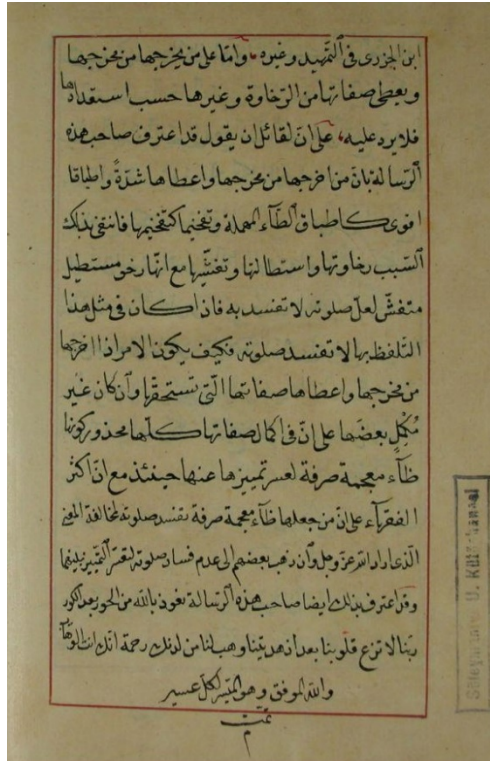 ابن الجزرى فى التمهيد وغيره، وامّا على من يخرجها من مخرجها
ويعطى صفاتها من الرّخاوة وغيرها حسب استعدادها
فلا يرد عليه، على انّ لقائل ان يقول قد اعترف صاحب هذه
الرّسالة بانّ من اخرجها من مخرجها واعطاها شدّةً واطباقا
اقوى كاطباق الطّآء المهملة وتفخيما كتفخيمها فانتفى بذلك
السّبب رخاوتها واستطالتها وتفشّيها مع انّها رخو مستطيل
متفشّ لعلّ صلوته لا تفسد به فاذا كان فى مثل هذا
التّلفظ بها لا تفسد صلوته فكيف يكون الامر اذا اخرجها
من مخرجها واعطاها صفاتها الّتى تستحقّها وان كان غير
مُكمّل بعضَها على انّ فى اكمال صفاتها كلّها محذور كونها
ظآء معجمة صرفة لعسر تمييزها عنها حينئذ مع انّ اكثر
الفقهآء على انّ من جعلها ظآء معجمة صرفة تفسد صلوته لمخالفة المعنى
الّذى اراد الله عزّ وجل وان ذهب بعضهم الى عدم فساد صلوته لتعسّر التّمييز بينهما
وقد اعترف بذلك ايضا صاحب هذه الرّسالة نعوذ بالله من الحور بعد الكور
ربّنا لا تزغ قلوبنا بعد اذ هديتنا وهب لنا من لدنك رحمة انّك انت الوهّاب
والله الموفق وهو الميسّر لكلّ عسير
تمّت
م
Süleymaniye U. Kütüphanesi